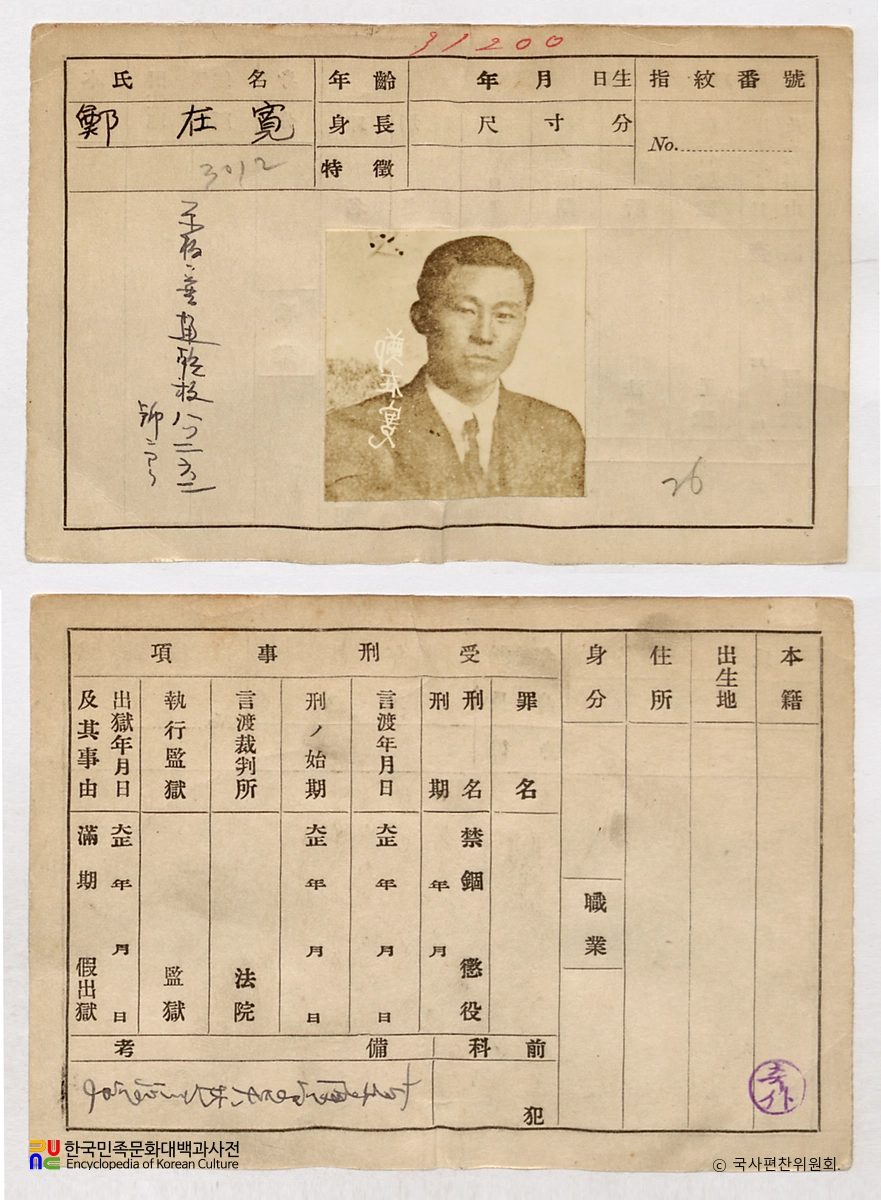 31200
氏名
鄭在寬
3012
年齡
年月日生
指紋番號
身長
尺寸分
No.
特徵
鄭在寬
26
本籍
出生地
住所
身分
職業
受刑事項
罪名
刑名
禁錮 懲役
刑期
年 月
言渡年月日
大正 年 月 日
刑ノ始期
大正 年 月 日
言渡裁判所
法院
執行監獄
監獄
出獄年月日
大正 年 月 日
及其事由
滿期 假出獄
前科
犯
備考
한국민족문화대백과사전
Encyclopedia of Korean Culture
© 국사편찬위원회.